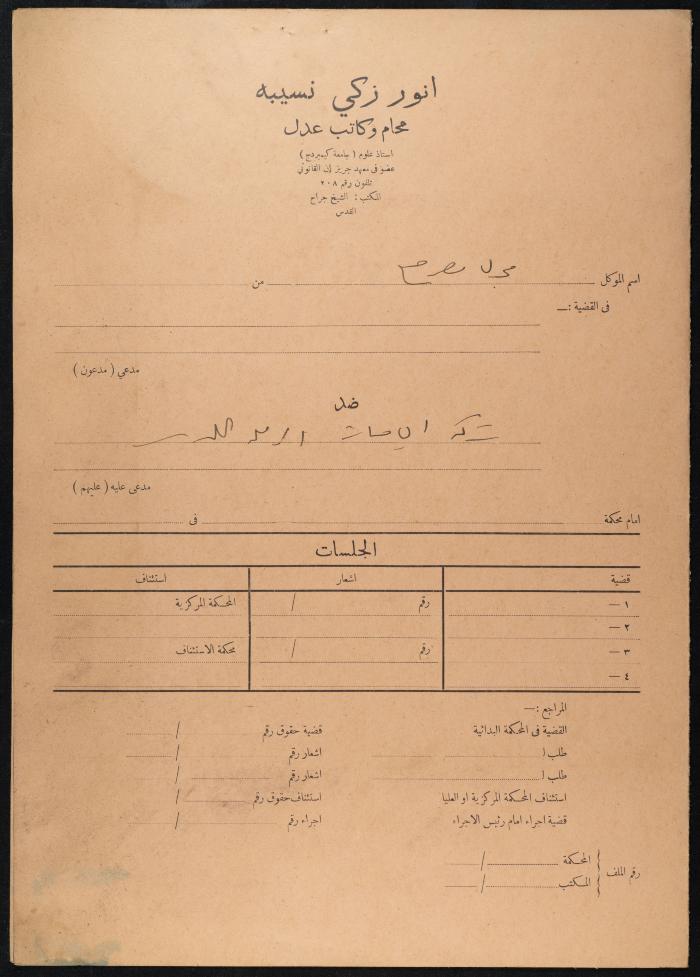 انور زكي نسيبه
محام وكاتب عدل
استاذ علوم ( جامعة كيمبردج )
عضو فى معهد جريز إن القانوني
تلفون رقم ٢٠٨
المكتب : الشيخ جراح
القدس
اسم الموكل من
فى القضية :ـ
مدعي ( مدعون )
ضد
شركة
مدعى عليه ( عليهم )
امام محكمة فى
الجلسات
قضية اشعار استئناف
١ — رقم / المحكمة المركزية
٢ —
٣ — رقم / محكمة الاستئناف
٤ —
المراجع :—
القضية فى المحكمة البدائية قضية حقوق رقم /
طلب ا اشعار رقم /
طلب ا اشعار رقم /
استئناف المحكمة المركزية او العليا استئناف حقوق رقم /
قضية اجراء امام رئيس الاجراء اجراء رقم /
رقم الملف
المحكمة /
المكتب /